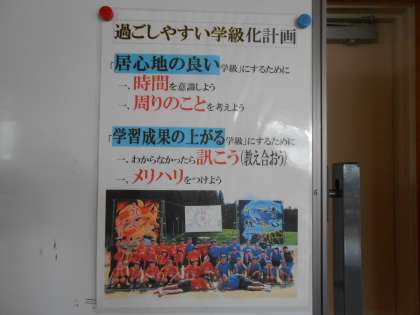 過ごしやすい学級化計画
「居心地の良い学級」にするために
一、時間を意識しよう
一、周りのことを考えよう
「学習成果の上がる学級」にするために
一、わからなかったら訊こう(教え合おう)
一、メリハリをつけよう